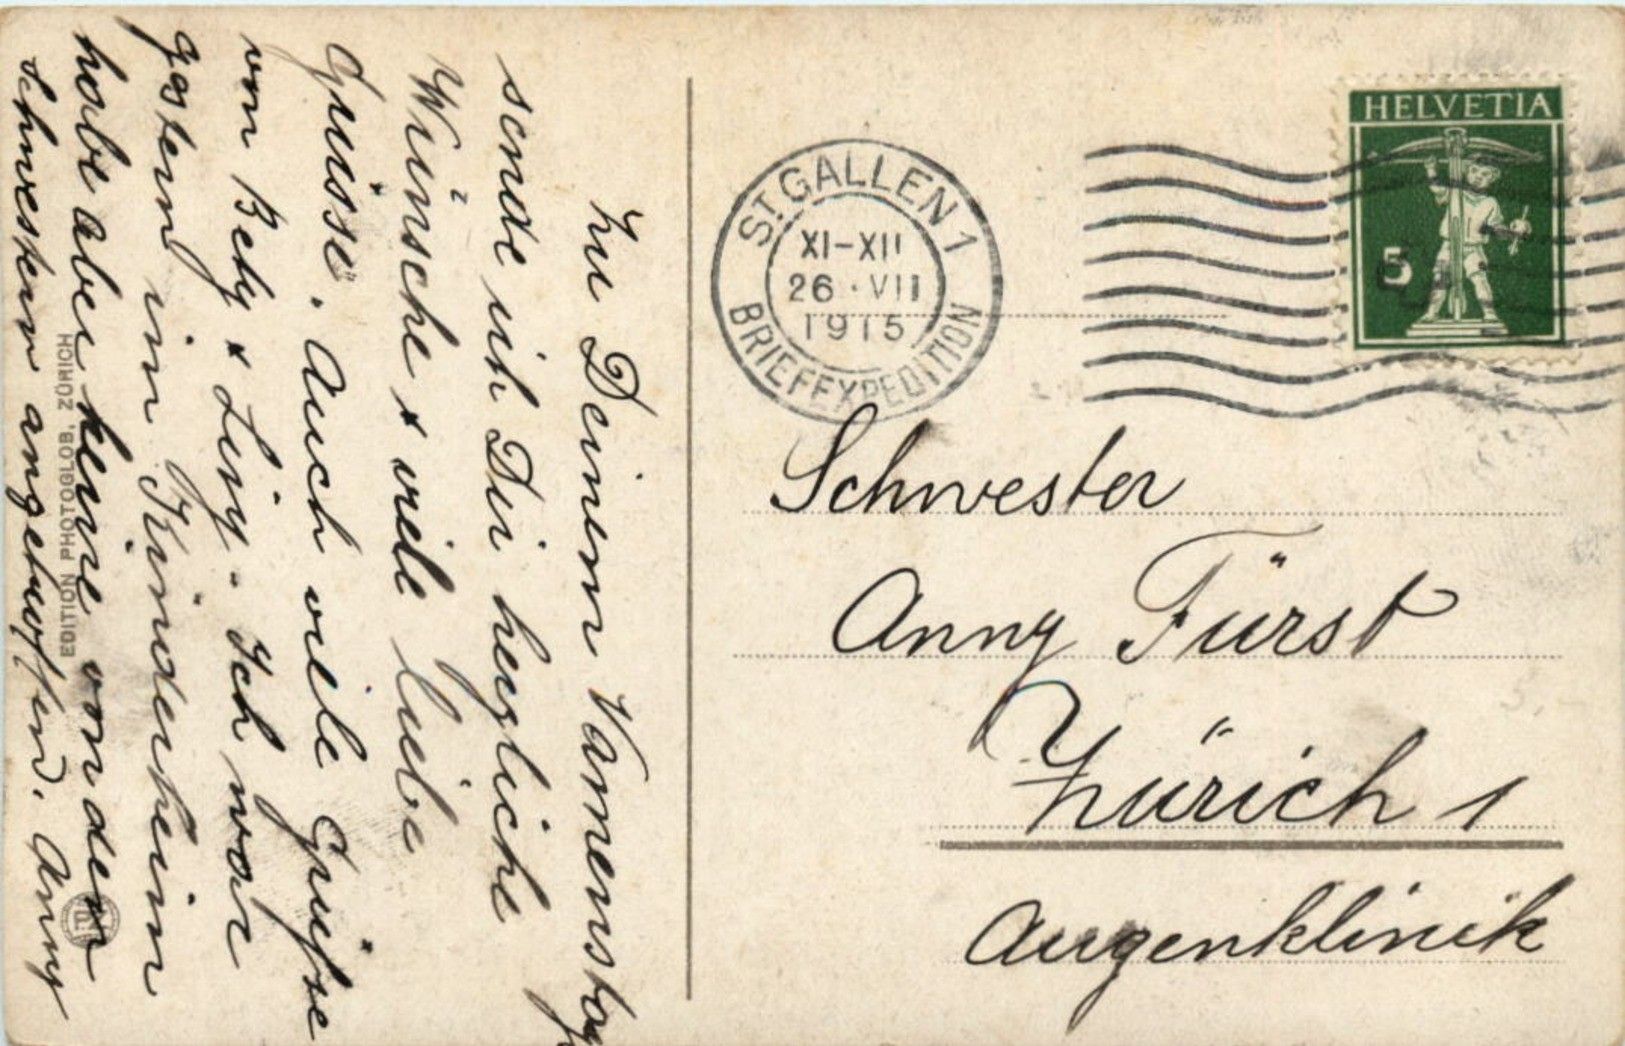 Zu Deinem Namenstag
sende ich Dir herzliche
Wünsche & viele liebe
Grüsse. Auch viele Grüße
von Bety & Lisy. Ich war
gestern im Kinderheim
habe aber keine von den
Schwestern angetroffen. Anny
EDITION PHOTOGLOB, ZÜRICH
ST. GALLEN 1
XI-XII
26.VII
1915
BRIEFEXPEDITION
HELVETIA
5
Schwester
Anny Fürst
Zürich 1
Augenklinik